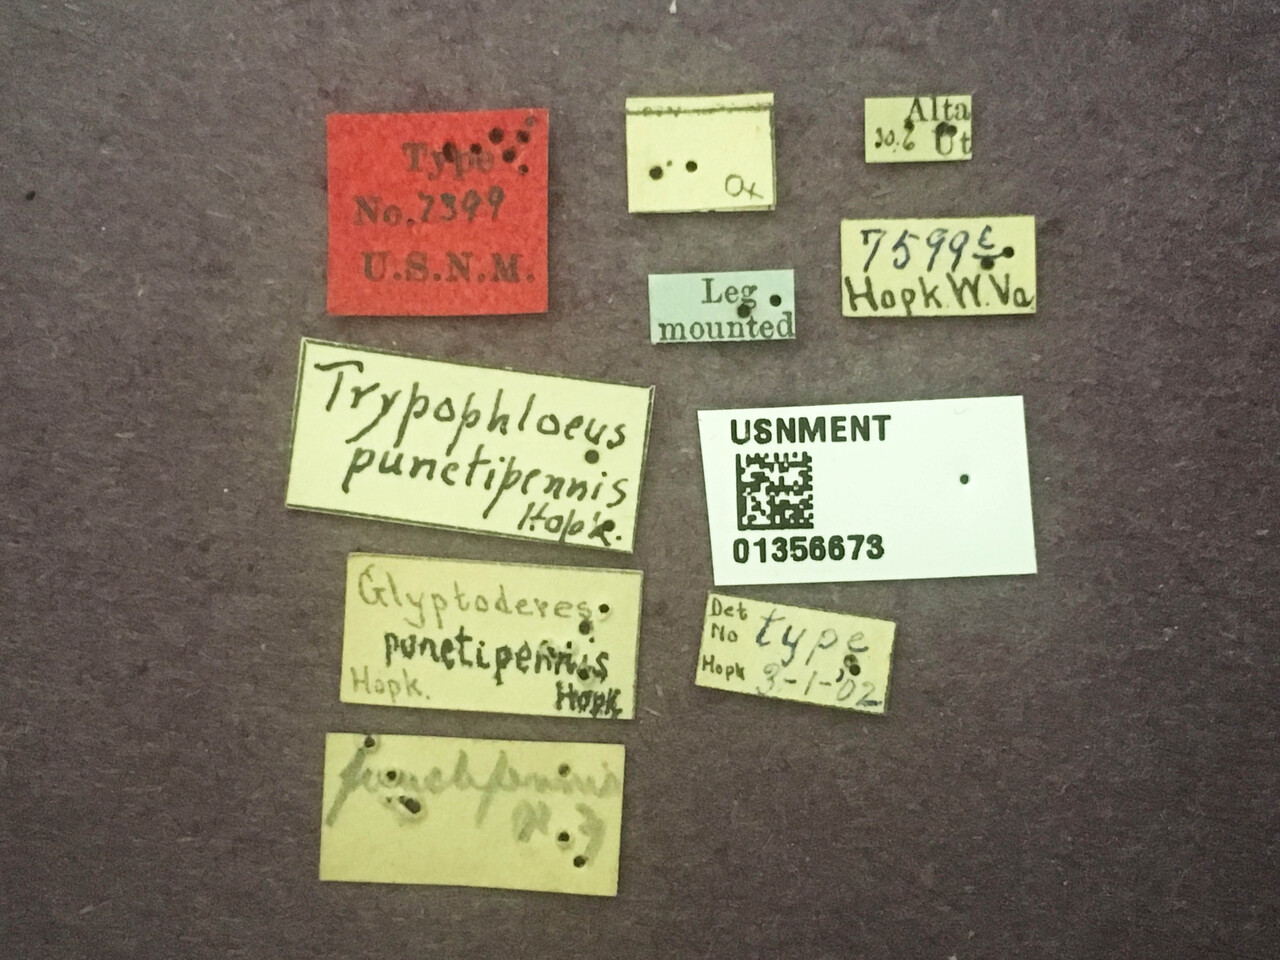 Type
No. 7399
U.S.N.M.
Alta
30.6 Ut
7599 c
Hopk. W. Va
Leg
mounted
Trypophloeus
punctipennis
Hopk.
USNMENT
01356673
Glyptoderes
punctipennis
Hopk. Hopk
Det
No type
Hopk 3-1-'02
punctipennis